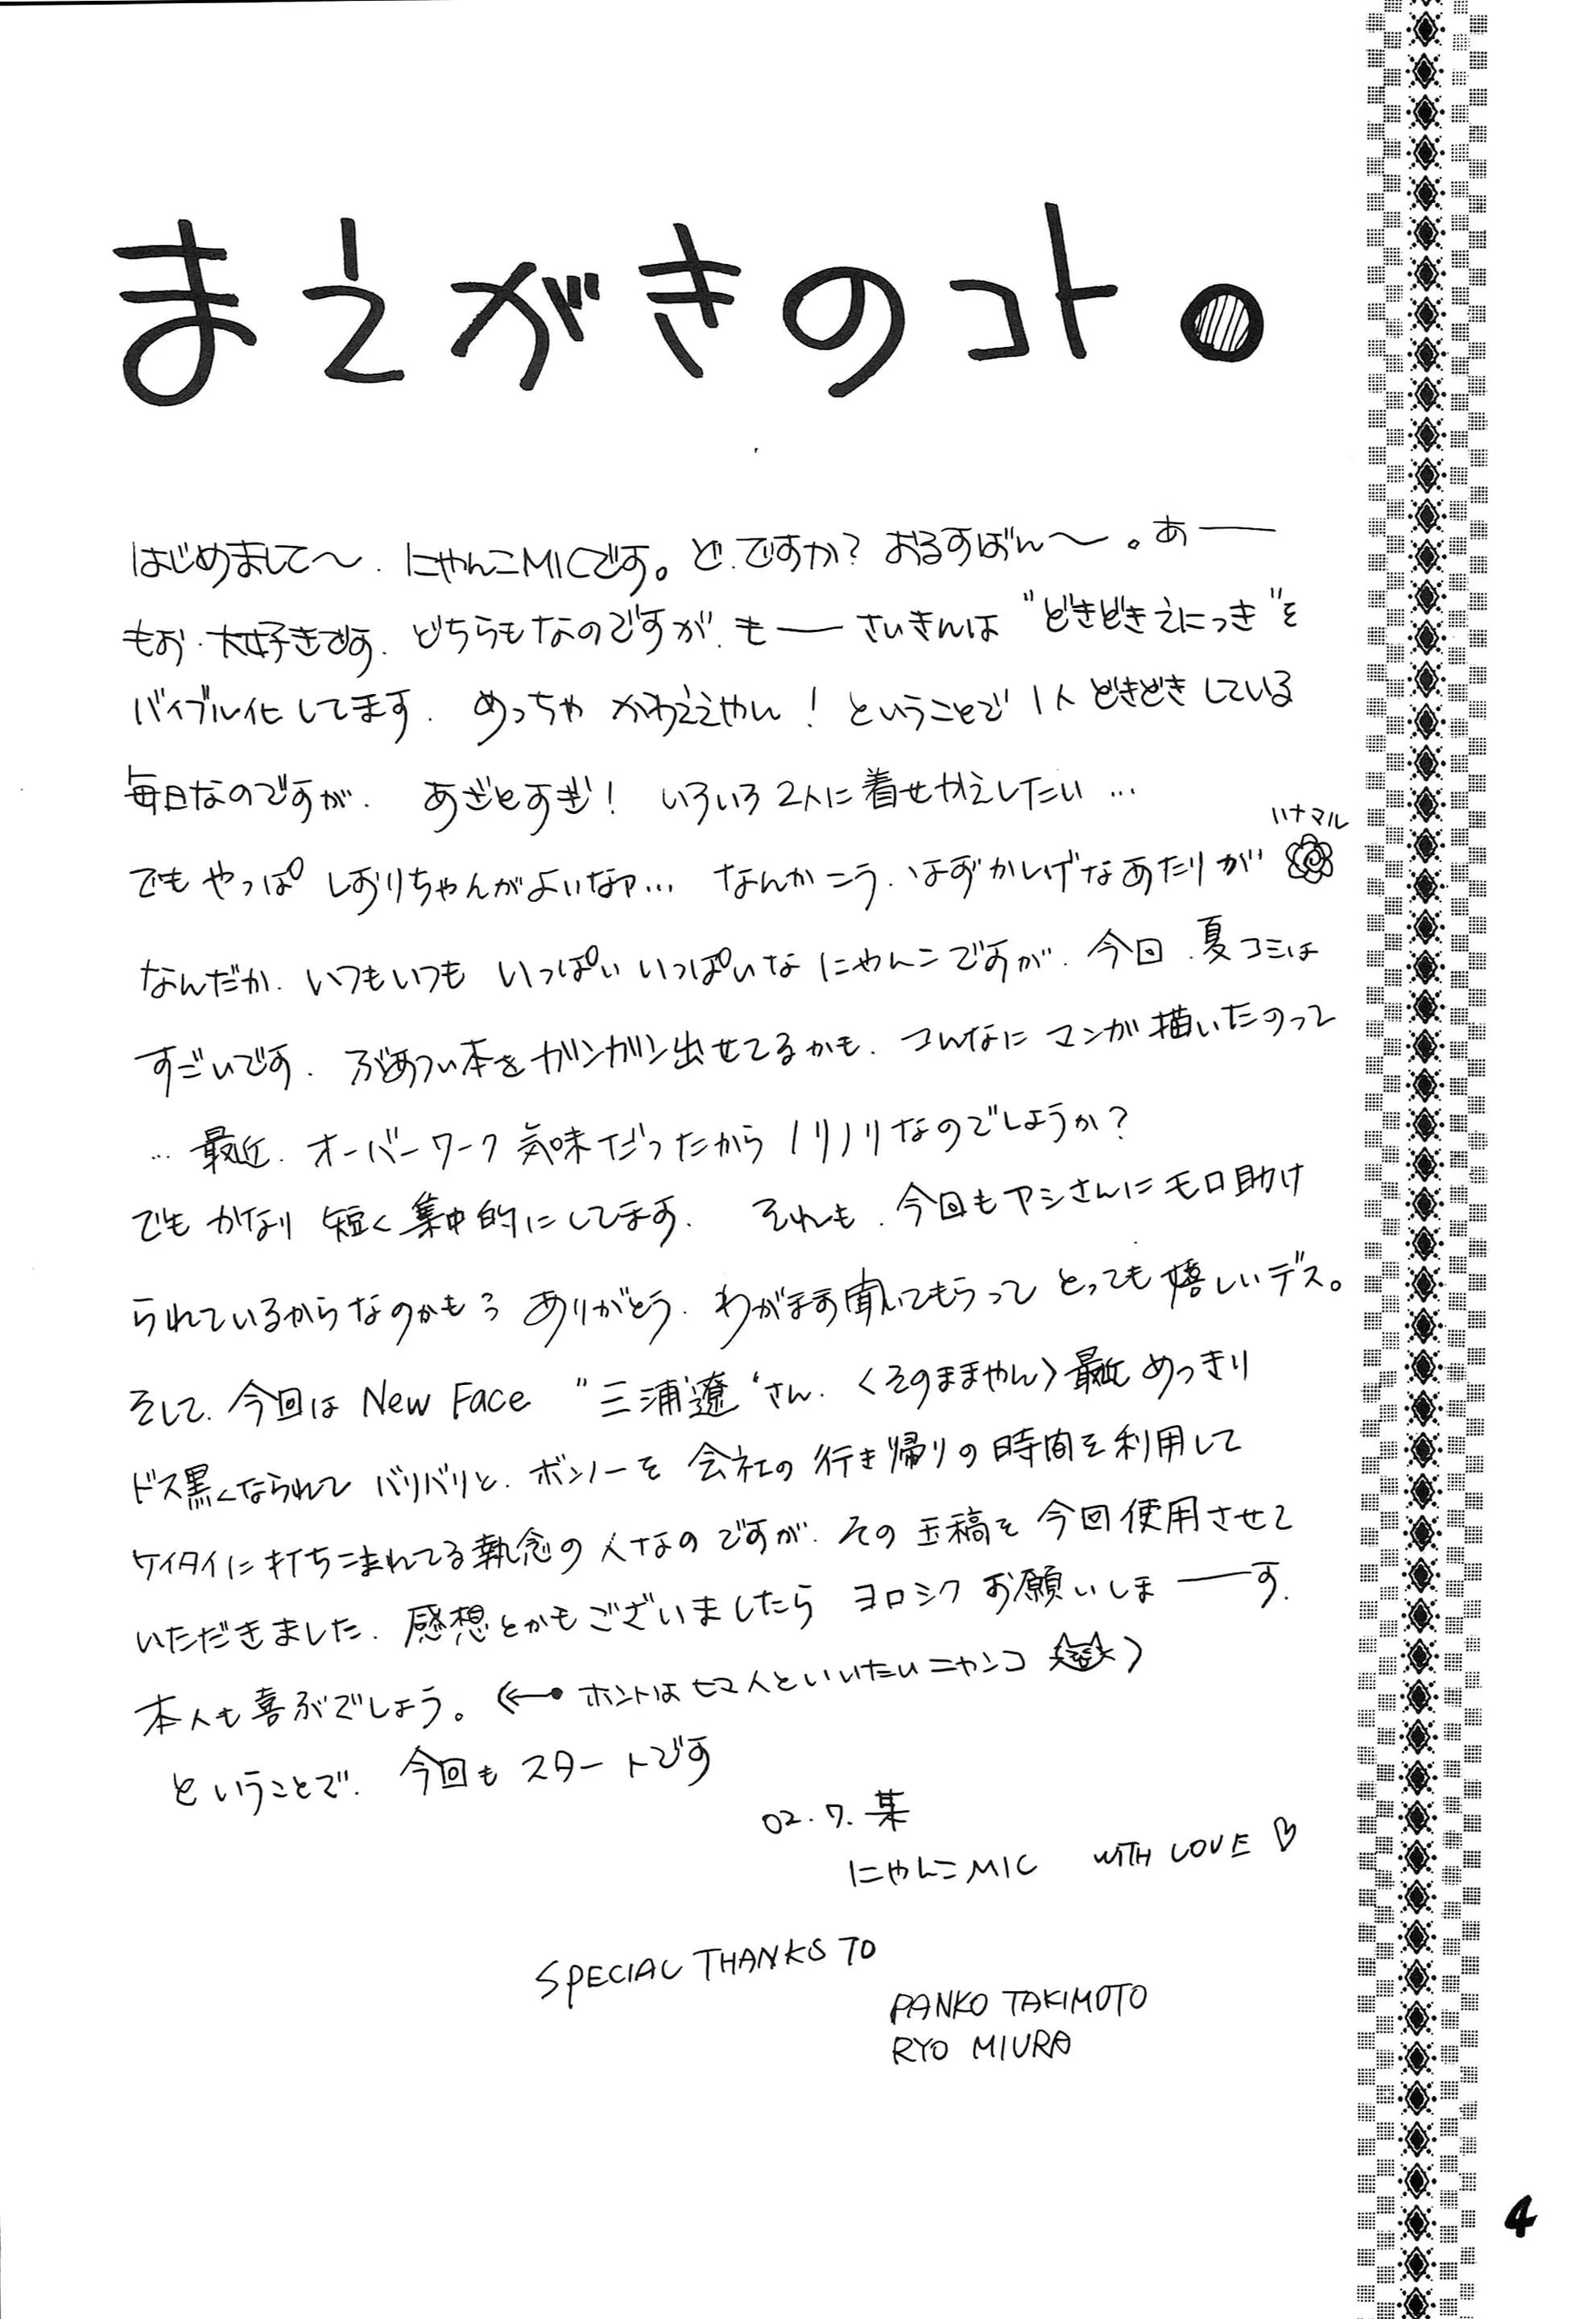 まえがきのコト。
はじめまして〜. にゃんこMICです。ど.ですか? おるすばん〜。あ——
もお.大好きです. どちらもなのですが. も——さいきんは "どきどきえにっき"を
バイブル化してます. めっちゃ かわええやん! ということで 1人 どきどきしている
毎日なのですが. あざとすぎ! いろいろ2人に着せかえしたい…
ハナマル
でも やっぱ しおりちゃんがよいなァ… なんかこう.はずかしげなあたりが
なんだか. いつもいつも いっぱい いっぱいな にゃんこですが. 今回.夏コミは
すごいです. ぶあつい本をガンガン出せてるかも. こんなに マンガ描いたのって
… 最近. オーバーワーク気味だったから ノリノリなのでしょうか?
でも かなり 短く集中的にしてます. それも.今回もアシさんにモロ助け
られているからなのかも? ありがとう. わがまま聞いてもらって とっても嬉しいデス。
そして. 今回は New Face "三浦遼"さん. 〈そのままやん〉最近 めっきり
ドス黒くなられて バリバリと. ボンノーを 会社の 行き帰りの 時間を利用して
ケイタイに打ちこまれてる執念の人なのですが. その玉稿を 今回使用させて
いただきました. 感想とかもございましたら ヨロシク お願いしま——す.
本人も喜ぶでしょう。(← ホントはヒマ人といいたいニャンコ )
ということで. 今回も スタートです
02.7.某
にゃんこMIC WITH LOVE ♡
SPECIAL THANKS TO
PANKO TAKIMOTO
RYO MIURA
4